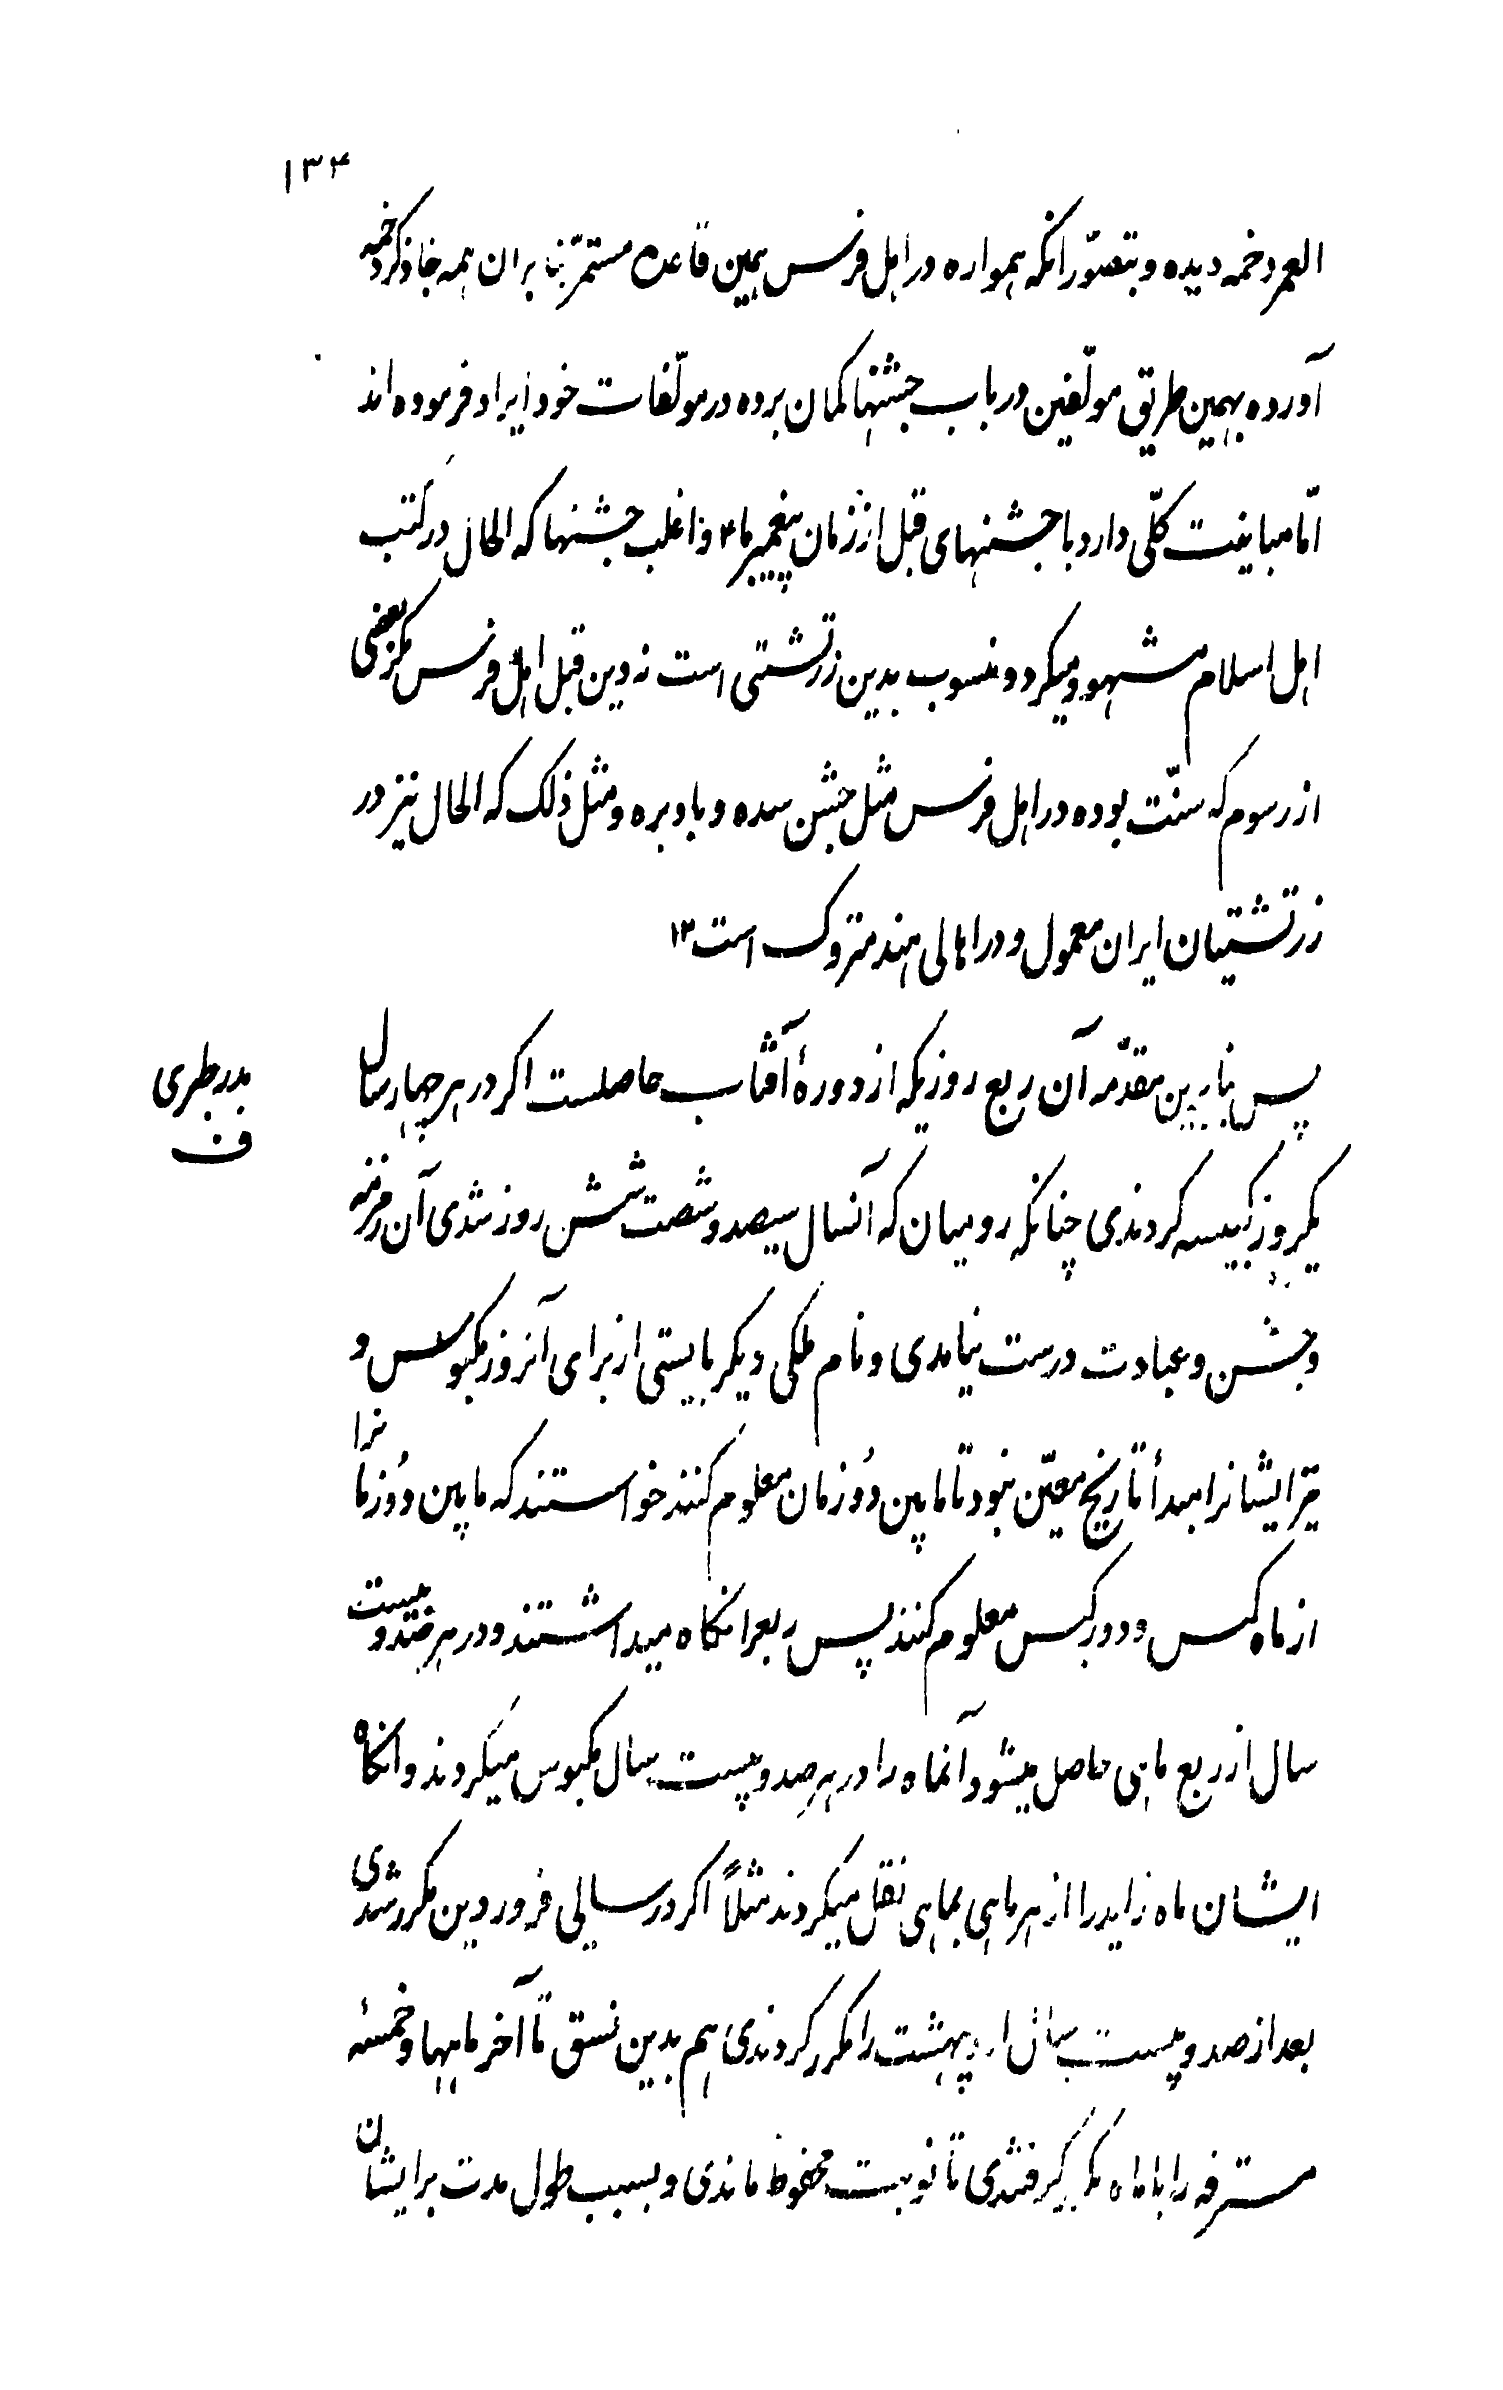 ۱۳۴
العمر دخمه دیده و بتصوّر انکه همواره در اهل فرس همین قاعده مستمرّ بنا بران همه جا ذکر دخمه
آورده بهمین طریق مولّفین در باب جشنها کمان برده در مولّفات خود ایراد فرموده اند
امّا مباینت کلّی دارد با جشنهای قبل از زمان پیغمبر ما و اغلب جشنها که الحال در کتب
اهل اسلام مشهود میکردد منسوب بدین زرتشتی است نه دین قبل اهل فرس مکر بعضی
از رسوم که سنّت بوده در اهل فرس مثل جشن سده و بادبره و مثل ذلک که الحال نیز در
زرتشتیان ایران معمول و در اهالی هند متروک است ۱۲
پس بنا برین مقدّمه آن ربع روزیکه از دورهٔ آفتاب حاصلست اکر در هر چهار سال
یکروز کبیسه کردندی چنانکه رومیان که آنسال سیصد و شصت شش روز شدی آن زمزمه
و جشن و عبادت درست نیامدی و نام ملکی دیکر بایستی از برای آنروز مکبوس و
نیز ایشانرا مبدأ تاریخ معیّن نبود تا مابین دُو زمان معلوم کنند خواستند که مابین دُو زمانرا
از ماه کبس و دور کبس معلوم کنند پس ربعرا نکاه میداشتند و در هر صد و بیست
سال از ربع ماهی حاصل میشود آنماه را در هر صد و بیست سال مکبوس میکردند و انکاه
ایشان ماه زاید را از هر ماهی بماهی نقل میکردند مثلاً اکر در سالی فروردین مکرر شدی
بعد از صد و بیست سال اردیبهشت را مکرر کردندی هم بدین نسق تا آخر ماهها و خمسه
مسترقه را با ماه مکبوس کرفتندی تا نوبت محفوظ ماندی و بسبب طول مدت بر ایشان
بدر طبری
ف